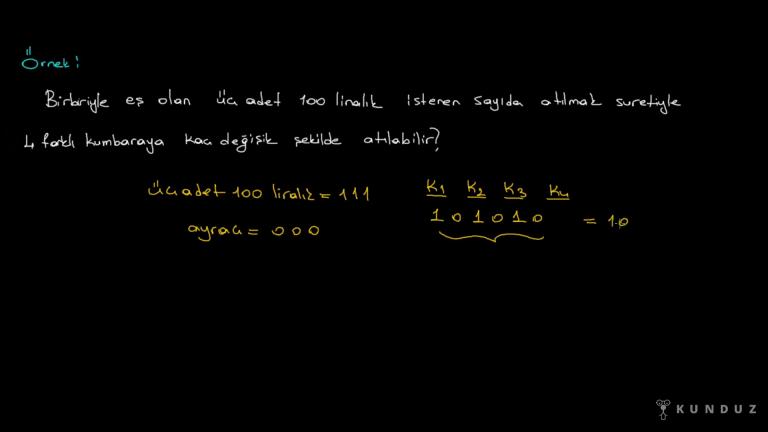 Örnek:
Birbiriyle eş olan üç adet 100 liralık istenen sayıda atılmak suretiyle
4 farklı kumbaraya kaç değişik şekilde atılabilir?
üç adet 100 liralık = 111
K1 K2 K3 K4
1 0 1 0 1 0 = 10
ayraç = 0 0 0
KUNDUZ